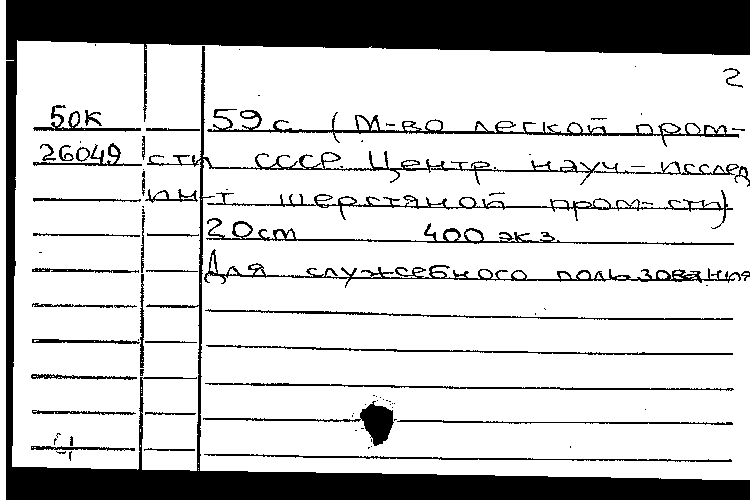 2
50к 59 с. (М-во легкой пром-
26049 сти СССР. Центр. науч.-исслед.
ин-т шерстяной пром-сти)
20 см 400 экз.
Для служебного пользования
4